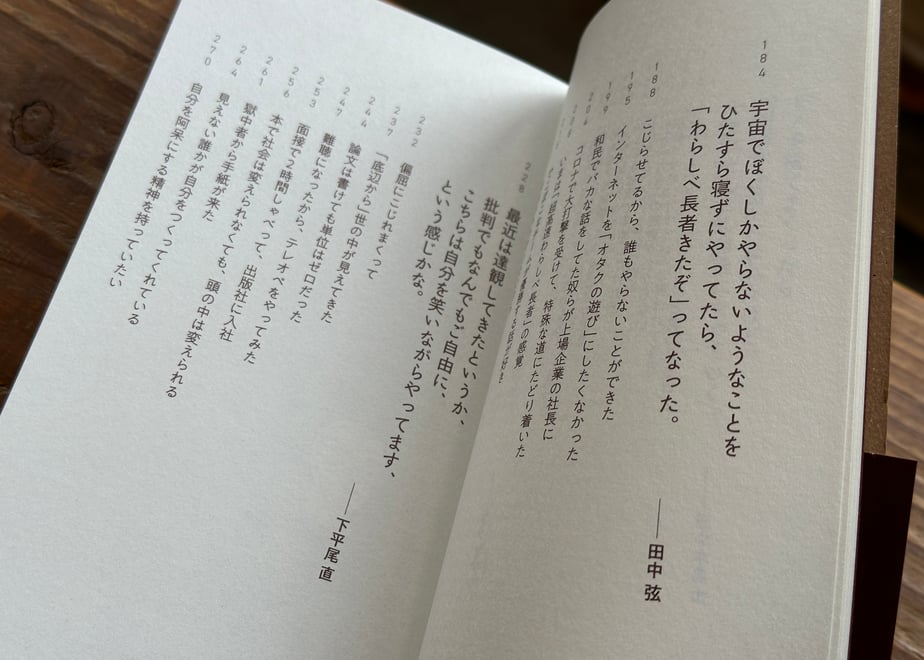 184
宇宙でぼくしかやらないようなことを
ひたすら寝ずにやってたら、
「わらしべ長者きたぞ」ってなった。
――田中 弦
188 こじらせてるから、誰もやらないことができた
195 インターネットを「オタクの遊び」にしたくなかった
199 和民でバカな話をしてた奴らが上場企業の社長に
204 コロナで大打撃を受けて、特殊な道にたどり着いた
208 いまは「超高速わらしべ長者」の感覚
228
最近は達観してきたというか、
批判でもなんでもご自由に、
こちらは自分を笑いながらやってます、
という感じかな。
――下平尾 直
232 偏屈にこじれまくって
237 「底辺から」世の中が見えてきた
244 論文は書けても単位はゼロだった
247 難聴になったから、テレオペをやってみた
253 面接で2時間しゃべって、出版社に入社
256 本で社会は変えられなくても、頭の中は変えられる
261 獄中者から手紙が来た
264 見えない誰かが自分をつくってくれている
270 自分を阿呆にする精神を持っていたい